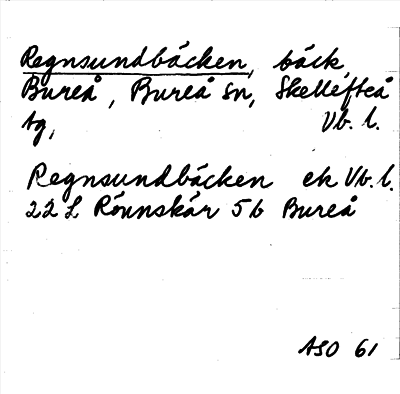 Regnsundbäcken, bäck
Bureå, Bureå sn, Skellefteå
tg, Vb. l.
Regnsundbäcken ek Vb. l.
22 L Rönnskär 5 b Bureå
ASO 61